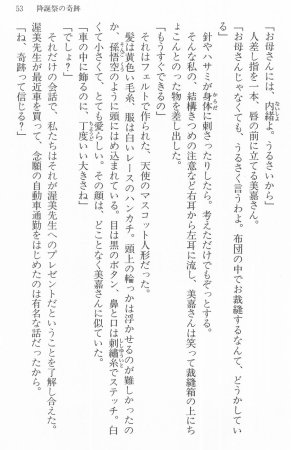 53 降誕祭の奇跡
「お母さんには、内緒よ。うるさいから」
人差し指を一本、唇の前に立てる美嘉さん。
「お母さんじゃなくても、うるさく言うわよ。布団の中へお裁縫するなんて、どうかしてい
る」
針やハサミが身体に刺さったりしたら。考えただけでもぞっとする。
そんな私の、結構きつめの注意など右耳から左耳に流し、美嘉さんは笑って裁縫箱の上にち
ょこんとのった物を差し出した。
「もうすぐできるの」
それはフェルトで作られた、天使のマスコット人形だった。
髪は黄色い毛糸、服は白いレースのハンカチ。頭上の輪っかは浮かせるのが難しかったの
か、孫悟空のように頭にはめ込まれている。目は黒のボタン、鼻と口は刺繡糸でステッチ。白
くて小さくて、とても愛らしい。その顔は、どことなく美嘉さんに似ていた。
「車の中に飾るのに、丁度いい大きさね」
「でしょ？」
それだけの会話で、私たちはそれが渥美先生へのプレゼントだということを了解し合えた。
渥美先生が最近車を買って、念願の自動車通勤をはじめたのは有名な話だったから。
「ね、奇跡って信じる？」